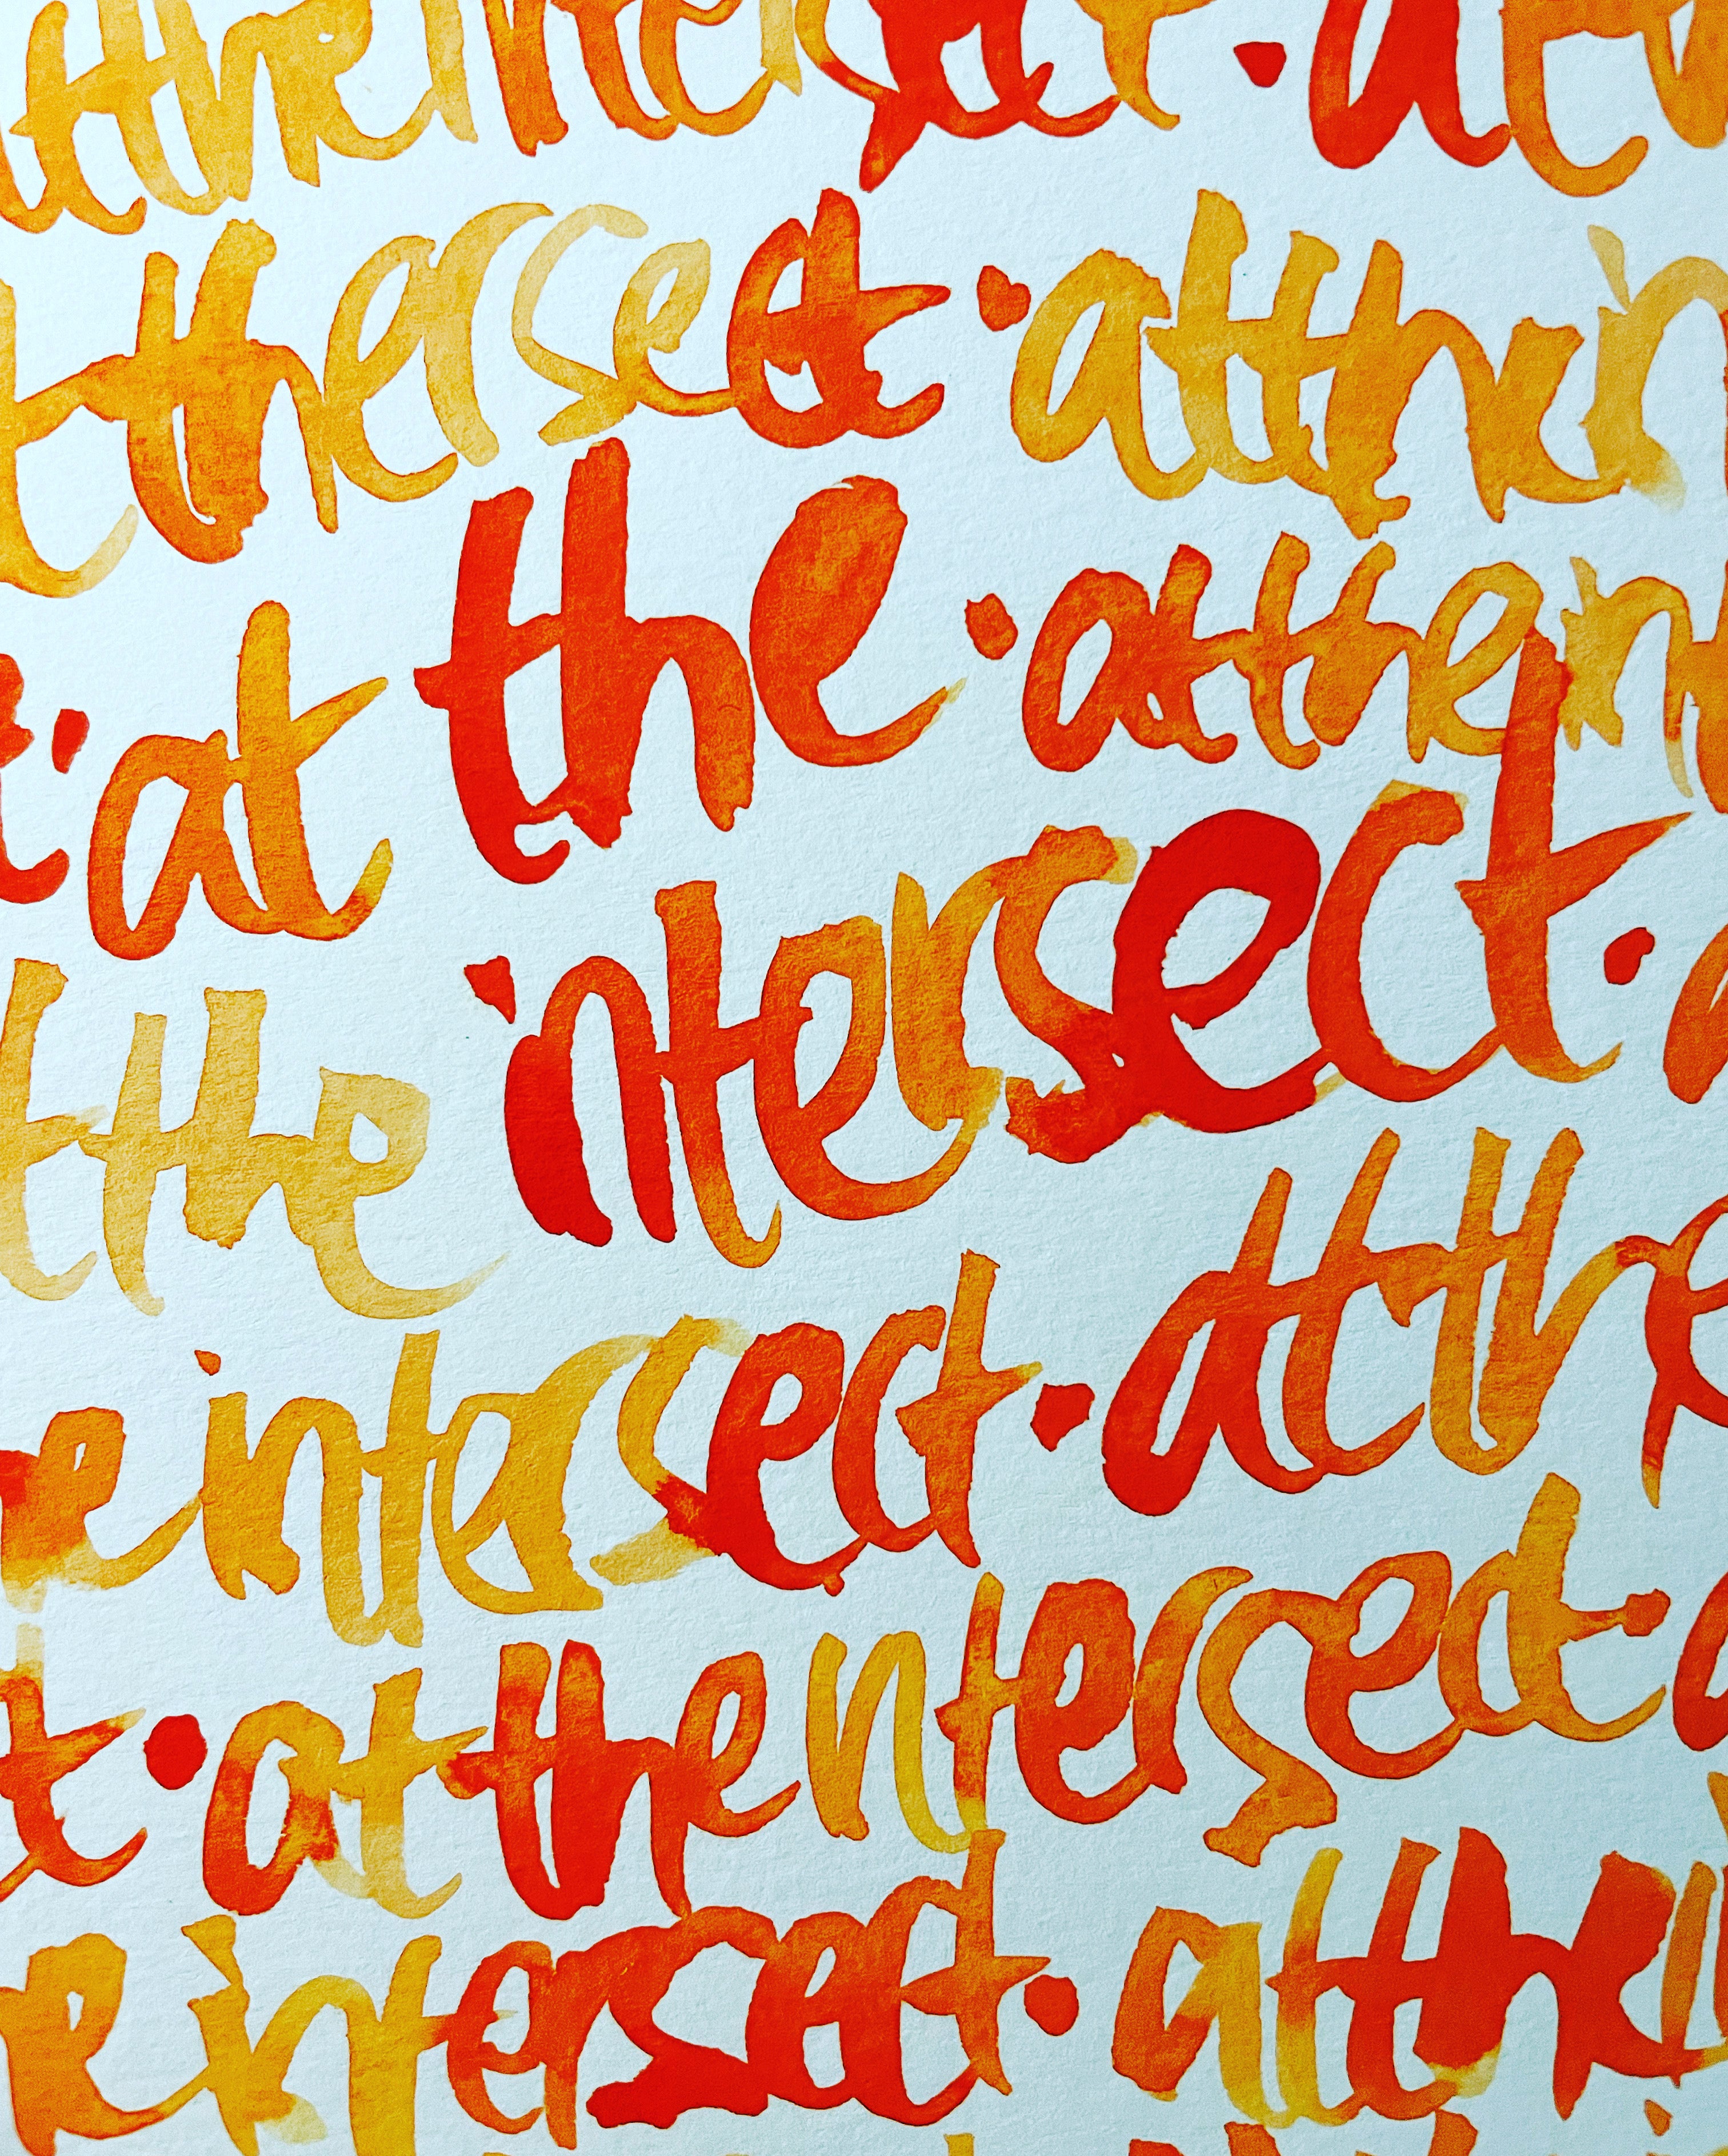 at the intersect · at
t thersect · at the in
t · at the · at the in
t the intersect · a
e intersect · at the
t · at the ntersect · a
e intersect · at the i